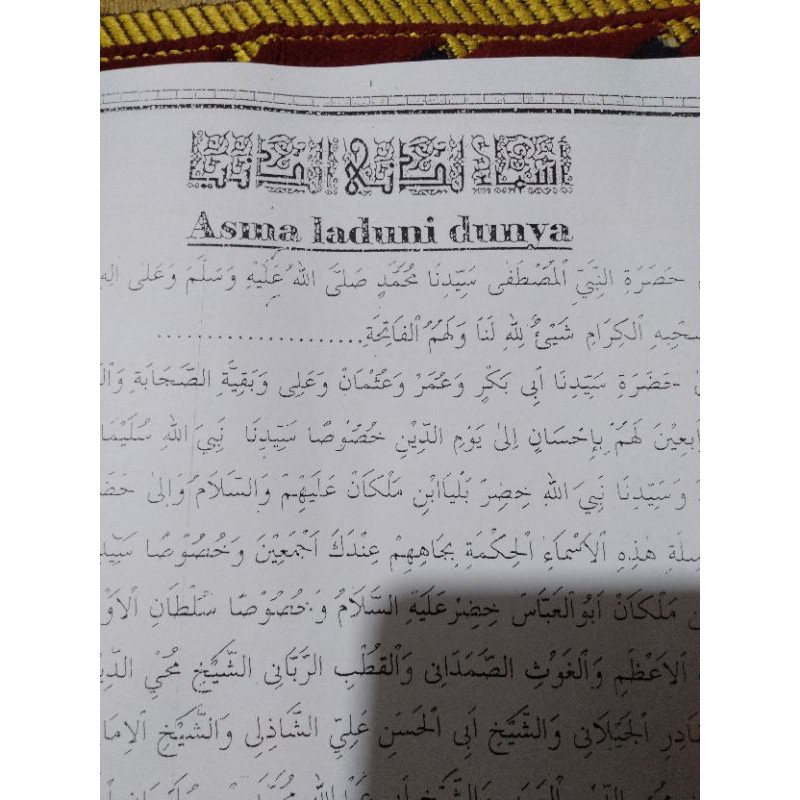 أسماء لدنه الدنيا
Asma laduni dunya
حَضَرَةِ النَّبِيِّ الْمُصْطَفَى سَيِّدِنَا مُحَمَّدٍ صَلَّى اللهُ عَلَيْهِ وَسَلَّمَ وَعَلَى اٰلِهِ
الْكِرَامِ شَيْئٌ لِلّٰهِ لَنَا وَلَهُمُ الْفَاتِحَةِ.....................
حَضَرَةِ سَيِّدِنَا أَبِي بَكْرٍ وَعُمَرْ وَعُثْمَانْ وَعَلِى وَبَقِيَّةِ الصَّحَابَةِ
لَهُمْ بِإِحْسَانٍ اِلىٰ يَوْمِ الدِّيْنِ خُصُوْصًا سَيِّدِنَا نَبِيَ اللهِ
وَسَيِّدِنَا نَبِيَ اللهِ خِضِرْ بَلْيَاابْنِ مَلْكَانْ عَلَيْهِمْ وَالسَّلَامُ وَاِلىٰ
هٰذِهِ الْاَسْمَاءِ الْحِكْمَةِ بِجَاهِهِمْ عِنْدَكَ اَجْمَعِيْنَ وَخُصُوْصًا
مَلْكَانْ اَبُوالْعَبَّاسْ خِضِرْ عَلَيْهِ السَّلَامُ وَخُصُوْصًا سُلْطَانِ
الْاَعْظَمِ وَالْغَوْثِ الصَّمَدَانِى وَالْقُطْبِ الرَّبَّانِى الشَّيْخِ مُحْيِ
الْجَيْلَانِى وَالشَّيْخِ اَبِى الْحَسَنِ عَلِيِّ الشَّاذِلِى وَالشَّيْخِ